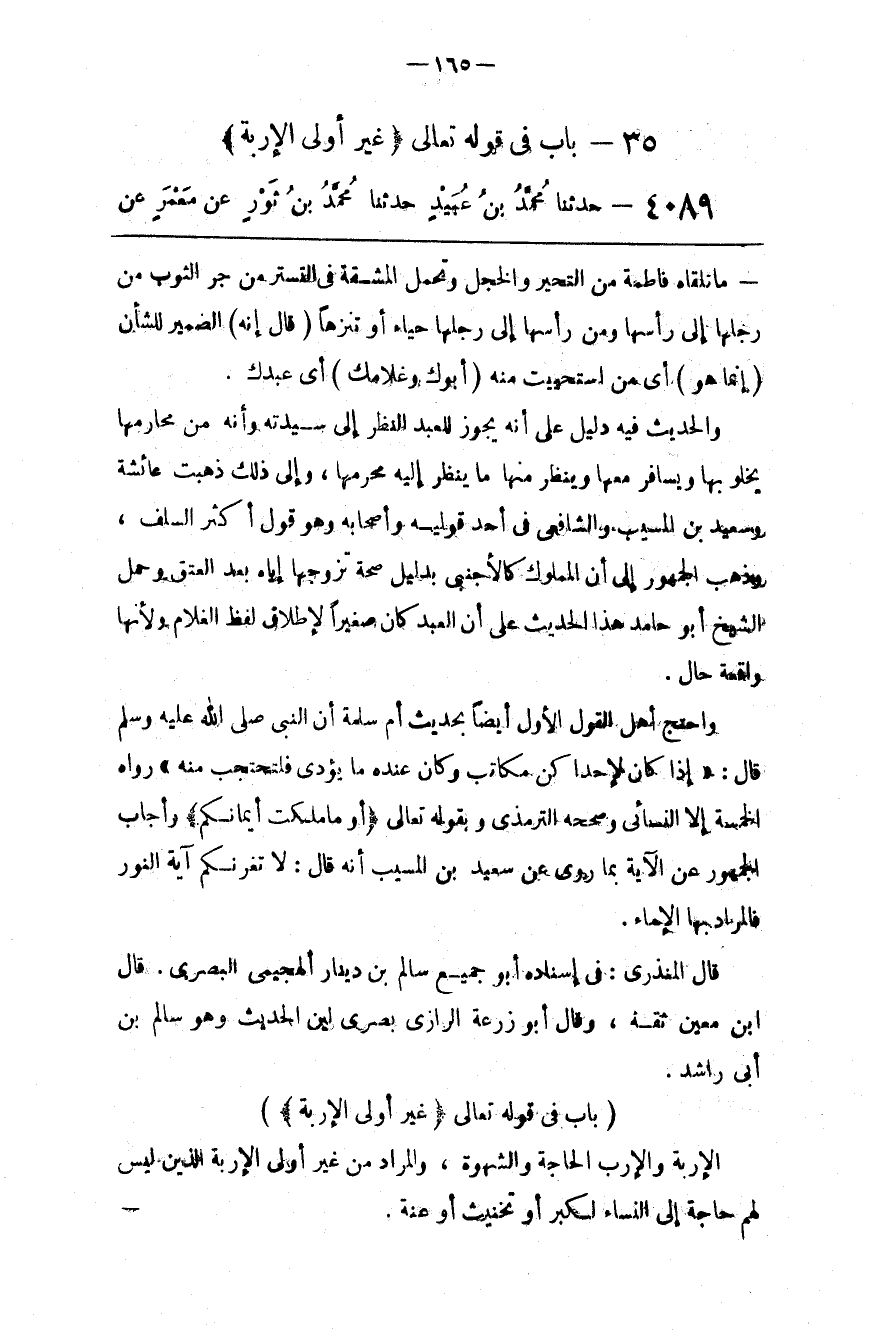 — ١٦٥ —
٣٥ — باب فى قوله تعالى ﴿ غير أولى الإربة ﴾
٤٠٨٩ — حدثنا مُحمَّدُ بنُ عُبَيْدٍ حدثنا مُحمَّدُ بنُ ثَوْرٍ عن مَعْمَرٍ عن
— ماتلقاه فاطمة من التحير والخجل وتحمل المشقة فى التستر من جر الثوب من
رجلها إلى رأسها ومن رأسها إلى رجلها حياء أو تنزهاً ( قال إنه ) الضمير للشأن
( إنما هو ) أى من استحييت منه ( أبوك وغلامك ) أى عبدك .
والحديث فيه دليل على أنه يجوز للعبد النظر إلى سيدته وأنه من محارمها
يخلو بها ويسافر معها وينظر منها ما ينظر إليه محرمها ، وإلى ذلك ذهبت عائشة
وسعيد بن المسيب والشافعى فى أحد قوليه وأصحابه وهو قول أكثر السلف ،
وذهب الجمهور إلى أن المملوك كالأجنبى بدليل صحة تزوجها إياه بعد العتق وحمل
الشيخ أبو حامد هذا الحديث على أن العبد كان صغيراً لإطلاق لفظ الغلام ولأنها
واقعة حال .
واحتج أهل القول الأول أيضاً بحديث أم سلمة أن النبى صلى الله عليه وسلم
قال : « إذا كان لإحدا كن مكاتب وكان عنده ما يؤدى فلتحتجب منه » رواه
الخمسة إلا النسائى وصححه الترمذى و بقوله تعالى ﴿ أو ماملكت أيمانكم ﴾ وأجاب
الجمهور عن الآية بما روى عن سعيد بن المسيب أنه قال : لا تغرنكم آية النور
فالمراد بها الإماء .
قال المنذرى : فى إسناده أبو جميع سالم بن دينار الهجيمى البصرى . قال
ابن معين ثقة ، وقال أبو زرعة الرازى بصرى لين الحديث وهو سالم بن
أبى راشد .
( باب فى قوله تعالى ﴿ غير أولى الإربة ﴾ )
الإربة والإرب الحاجة والشهوة ، والمراد من غير أولى الإربة الذين ليس
لهم حاجة إلى النساء لكبر أو تخنيث أو عنة . —